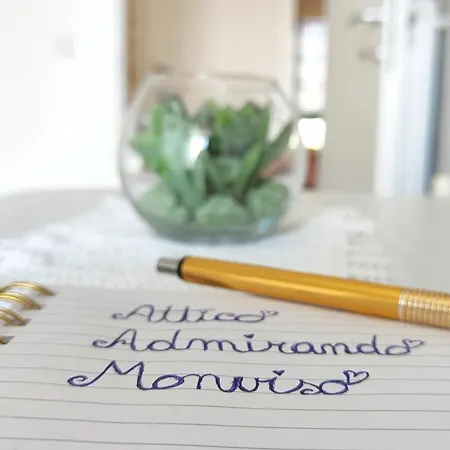 Attico
Admirando
Monviso